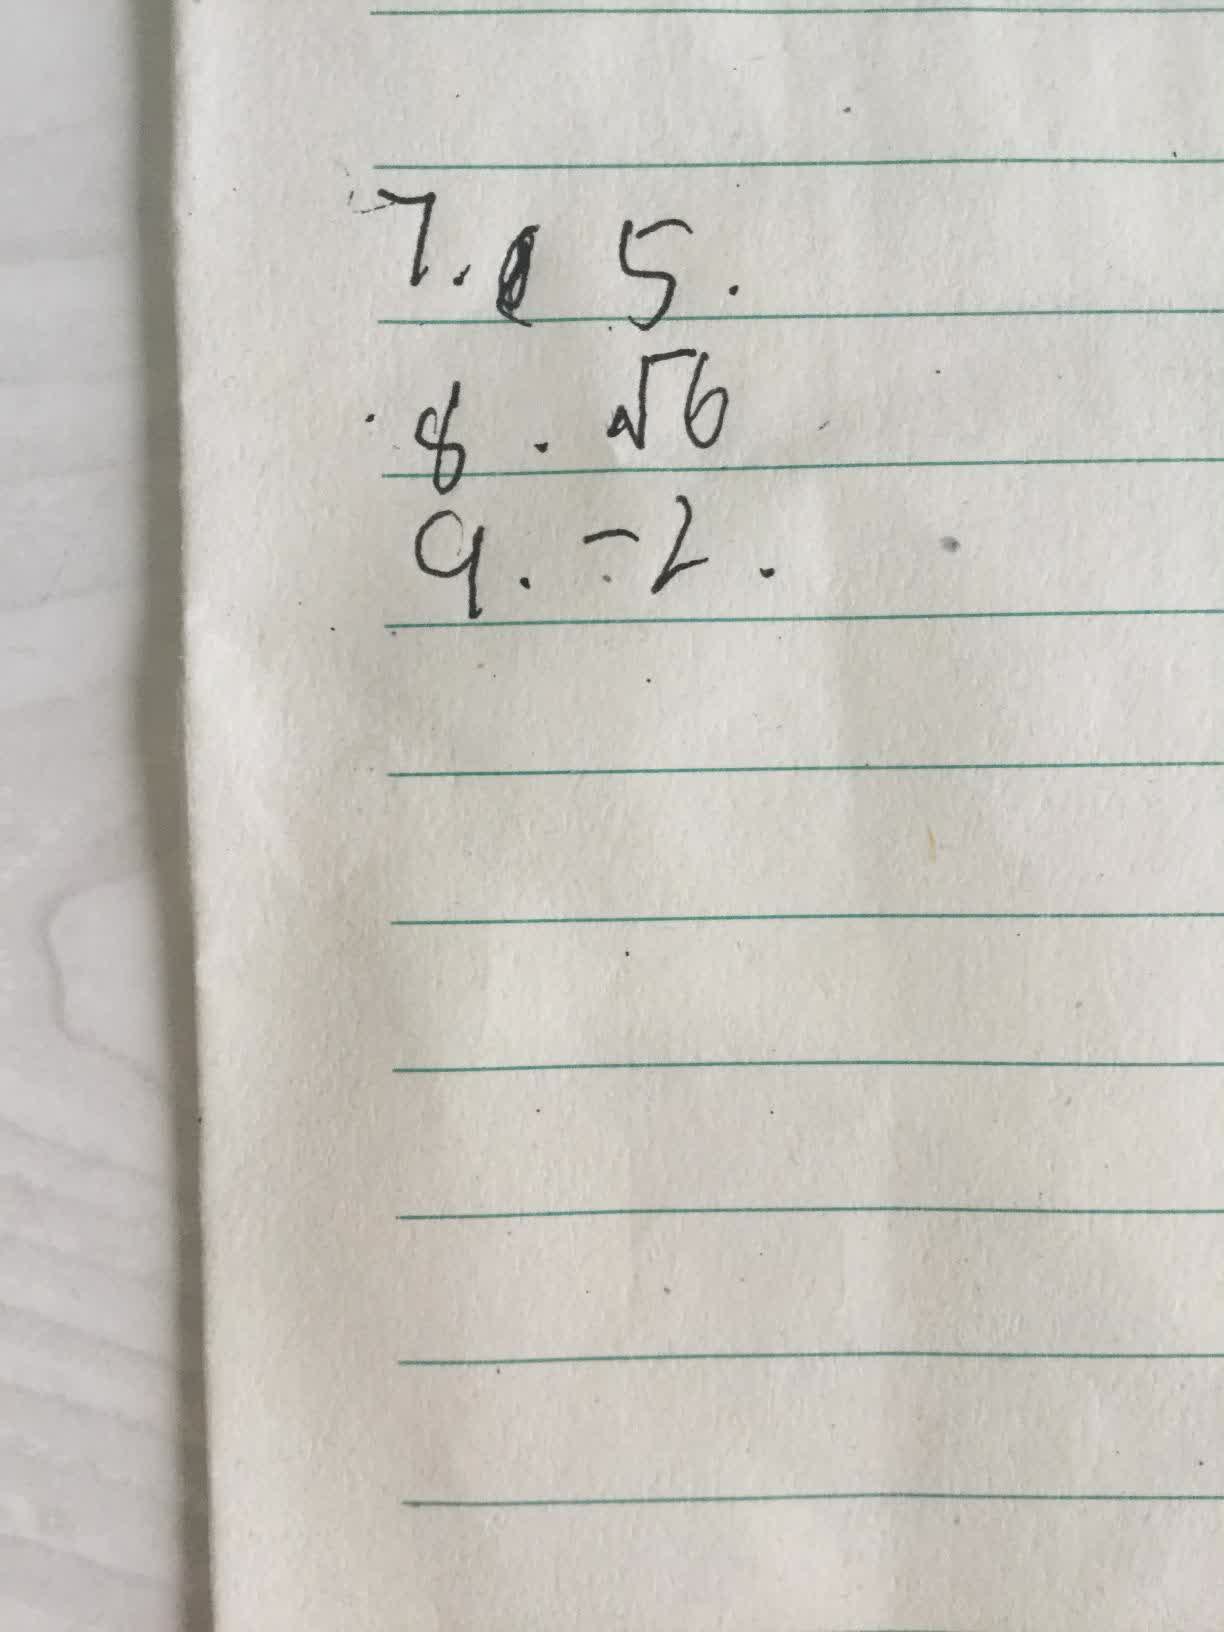 7. 5.
8. √6
9. -2.